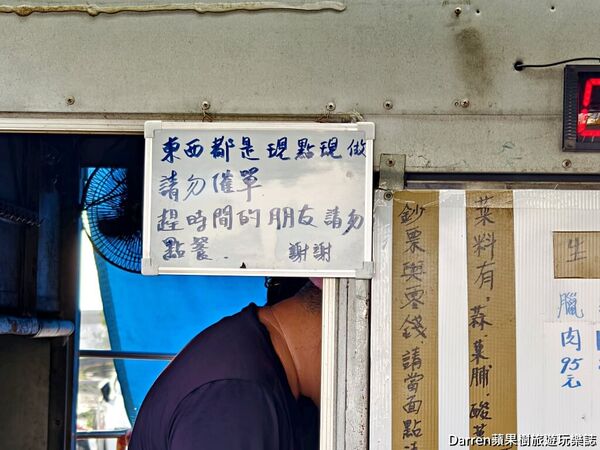 東西都是現點現做
請勿催單
趕時間的朋友請勿
點餐. 謝謝
鈔票與零錢，請當面點
菜料有，蒜、菜脯，酸菜
生
臘肉95元
Darren蘋果樹旅遊玩樂誌